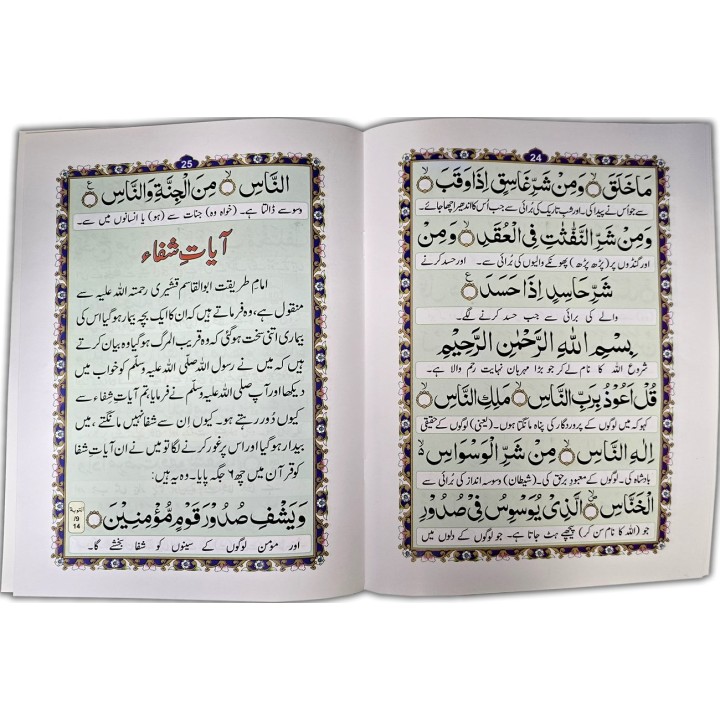 24
مَا خَلَقَ ۙ وَمِنْ شَرِّ غَاسِقٍ اِذَا وَقَبَ ۙ
سے جو اُس نے پیدا کی۔ اور شبِ تاریک کی بُرائی سے جب اُس کا اندھیرا چھا جائے۔
وَمِنْ شَرِّ النَّفّٰثٰتِ فِی الْعُقَدِ ۙ وَمِنْ
اور گنڈوں پر (پڑھ پڑھ) پھونکنے والیوں کی بُرائی سے۔ اور حسد کرنے
شَرِّ حَاسِدٍ اِذَا حَسَدَ ع
والے کی برائی سے جب حسد کرنے لگے۔
بِسْمِ اللّٰهِ الرَّحْمٰنِ الرَّحِیْمِ
شروع اللہ کا نام لے کر جو بڑا مہربان نہایت رحم والا ہے۔
قُلْ اَعُوْذُ بِرَبِّ النَّاسِ ۙ مَلِكِ النَّاسِ ۙ
کہو کہ میں لوگوں کے پروردگار کی پناہ مانگتا ہوں۔ (یعنی) لوگوں کے حقیقی
اِلٰهِ النَّاسِ ۙ مِنْ شَرِّ الْوَسْوَاسِ ەۙ
بادشاہ کی۔ لوگوں کے معبودِ برحق کی۔ (شیطان) وسوسہ انداز کی بُرائی سے
الْخَنَّاسِ ۙ الَّذِیْ یُوَسْوِسُ فِیْ صُدُوْرِ
جو (اللہ کا نام سن کر) پیچھے ہٹ جاتا ہے۔ جو لوگوں کے دلوں میں
25
النَّاسِ ۙ مِنَ الْجِنَّةِ وَالنَّاسِ ع
وسوسے ڈالتا ہے۔ (خواہ وہ) جنات سے (ہو) یا انسانوں میں سے۔
آیاتِ شفاء
امامِ طریقت ابوالقاسم قشیری رحمتہ اللہ علیہ سے
منقول ہے، وہ فرماتے ہیں کہ ان کا ایک بچہ بیمار ہوگیا اس کی
بیماری اتنی سخت ہوگئی کہ وہ قریب المرگ ہوگیا وہ بیان کرتے
ہیں کہ میں نے رسول اللہ صلی اللہ علیہ وسلم کو خواب میں
دیکھا اور آپ صلی اللہ علیہ وسلم نے فرمایا، تم آیاتِ شفاء سے
کیوں دُور رہتے ہو۔ کیوں ان سے شفا نہیں مانگتے، میں
بیدار ہوگیا اور اس پر غور کرنے لگا تو میں نے ان آیاتِ شفا
کو قرآن میں چھ ۶ جگہ پایا۔ وہ یہ ہیں:
وَیَشْفِ صُدُوْرَ قَوْمٍ مُّؤْمِنِیْنَ ۙ
التوبة
9/
14
اور مؤمن لوگوں کے سینوں کو شفا بخشے گا۔